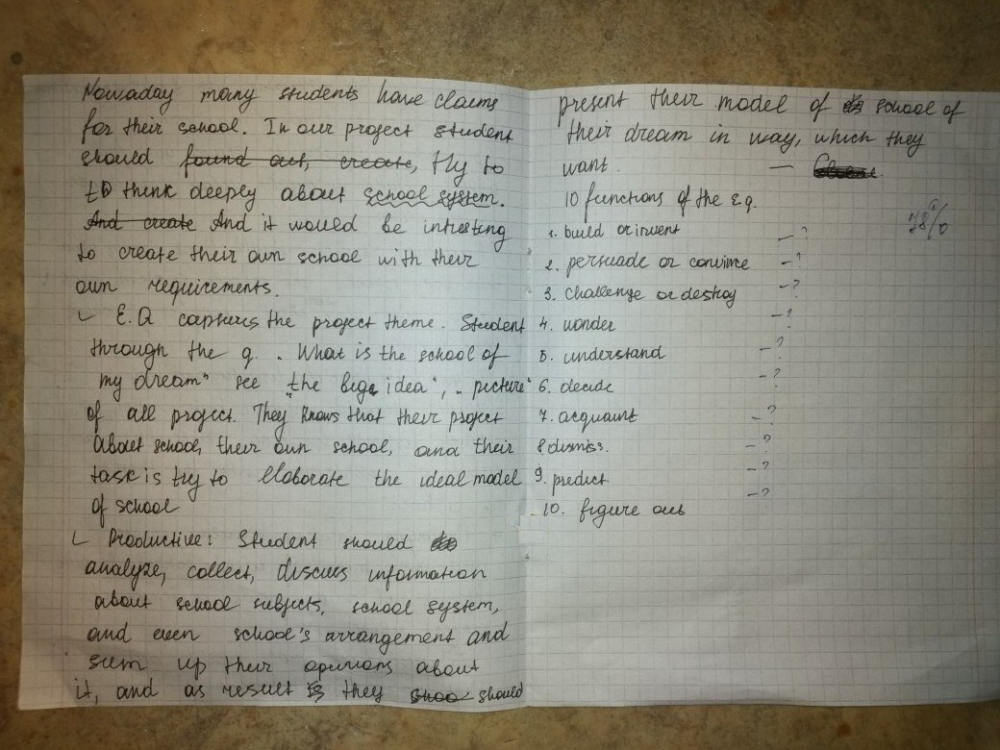 Nowaday many students have claims
for their school. In our project student
should found out, create, try to
to think deeply about school system.
And create And it would be intresting
to create their own school with their
own requirements.
E.Q captures the project theme. Student
through the q. "What is the school of
my dream" see "the big idea", "picture"
of all project. They knows that their project
about school, their own school, and their
task is try to elaborate the ideal model
of school
Productive: Student should
analyze, collect, discuss information
about school subjects, school system,
and even school's arrangement and
sum up their opinions about
it, and as result they should
present their model of school of
their dream in way, which they
want. —
10 functions of the E.q.
1. build or invent —?
2. persuade or convince —?
3. challenge or destroy —?
4. wonder —?
5. understand —?
6. decide —?
7. acquaint —?
8 dismiss. —?
9. predict —?
10. figure out —?